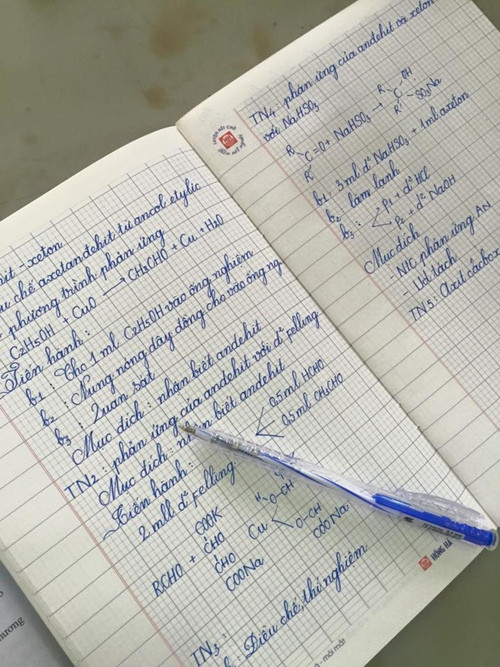 hit - xeton
chế axetanđehit từ ancol etylic
phương trình phản ứng
C₂H₅OH + CuO → CH₃CHO + Cu + H₂O
Tiến hành :
b₁ : Cho 1 ml C₂H₅OH vào ống nghiệm
b₂ : Nung nóng dây đồng cho vào ống ng
b₃ : Quan sát
Mục đích : nhận biết anđehit
TN₂ : phản ứng của anđehit với d² felling
Mục đích : nhận biết anđehit
Tiến hành :
2 mll d² felling
0.5 ml HCHO
0.5 ml CH₃CHO
COOK
ĊHO
RCHO +
Cu
ĊHO
COONa
O-CH
O-CH
COONa
TN₃ :
Điều chế, thí nghiệm
HỒNG HÀ
mỗi một
TN₄ : phản ứng của anđehit và xeton
với NaHSO₃
R
C=O + NaHSO₃ →
R'
R OH
C
R' SO₃Na
b₁ : 3 ml d² NaHSO₃ + 1ml axeton
b₂ : làm lạnh
b₃ :
P₁ + d² HCl
P₂ + d² NaOH
Mục đích
- N/C phản ứng AN
- Ud tách
TN₅ : Axit cacbox